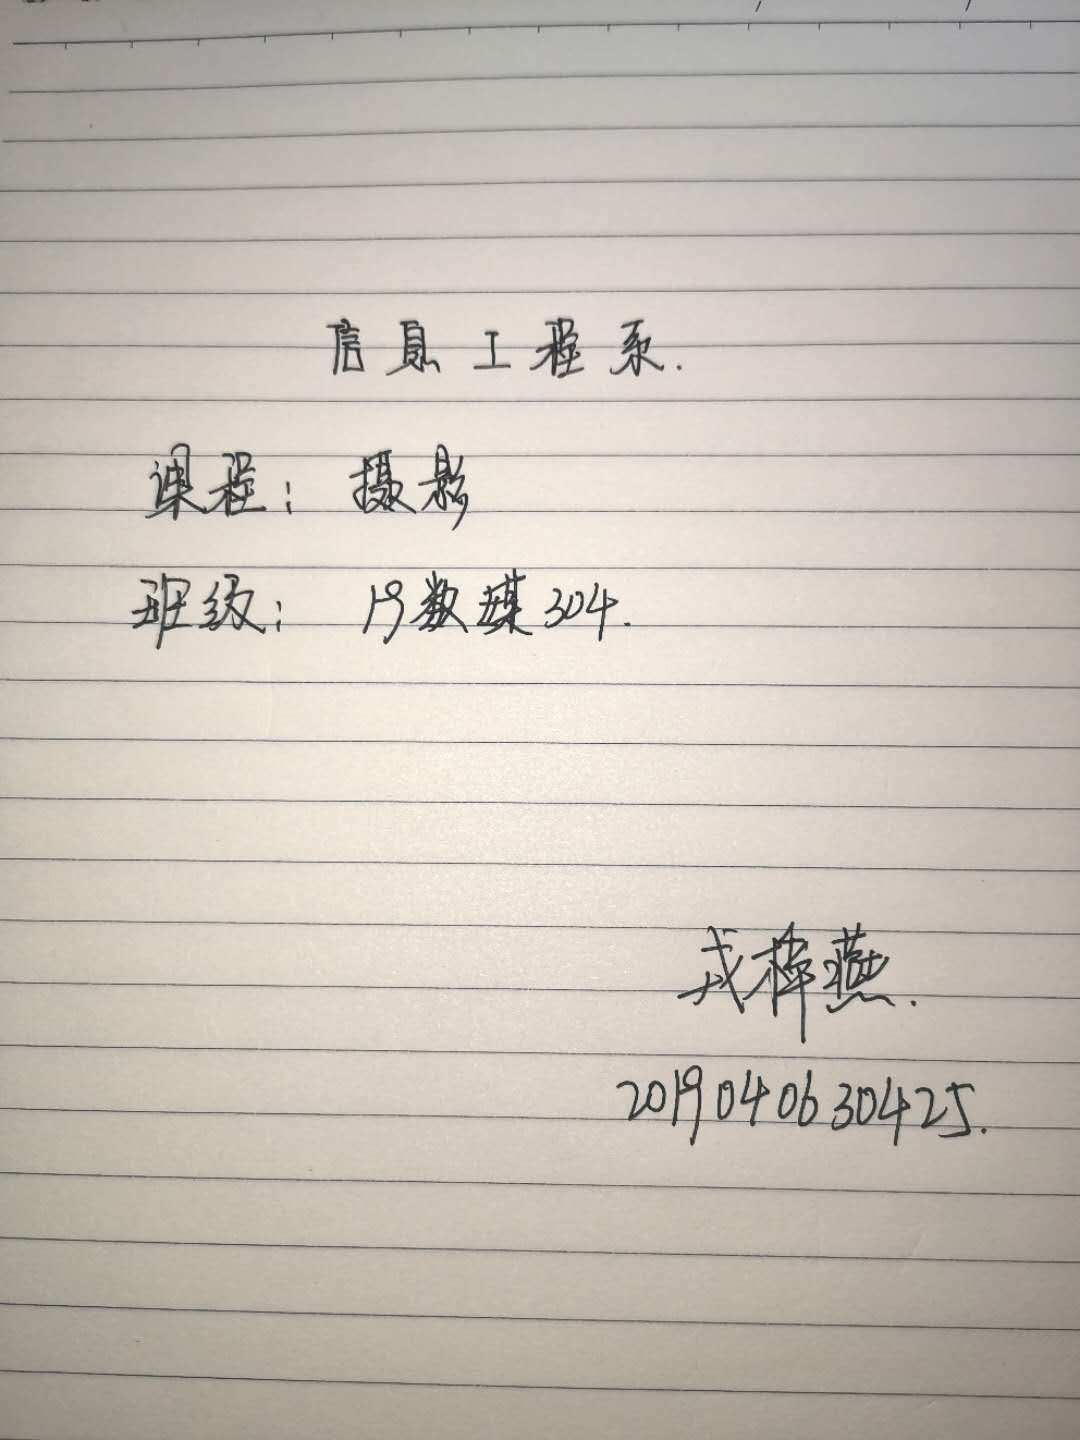 信息工程系.
课程: 摄影
班级: 19数媒304.
戎梓燕.
2019040630425.